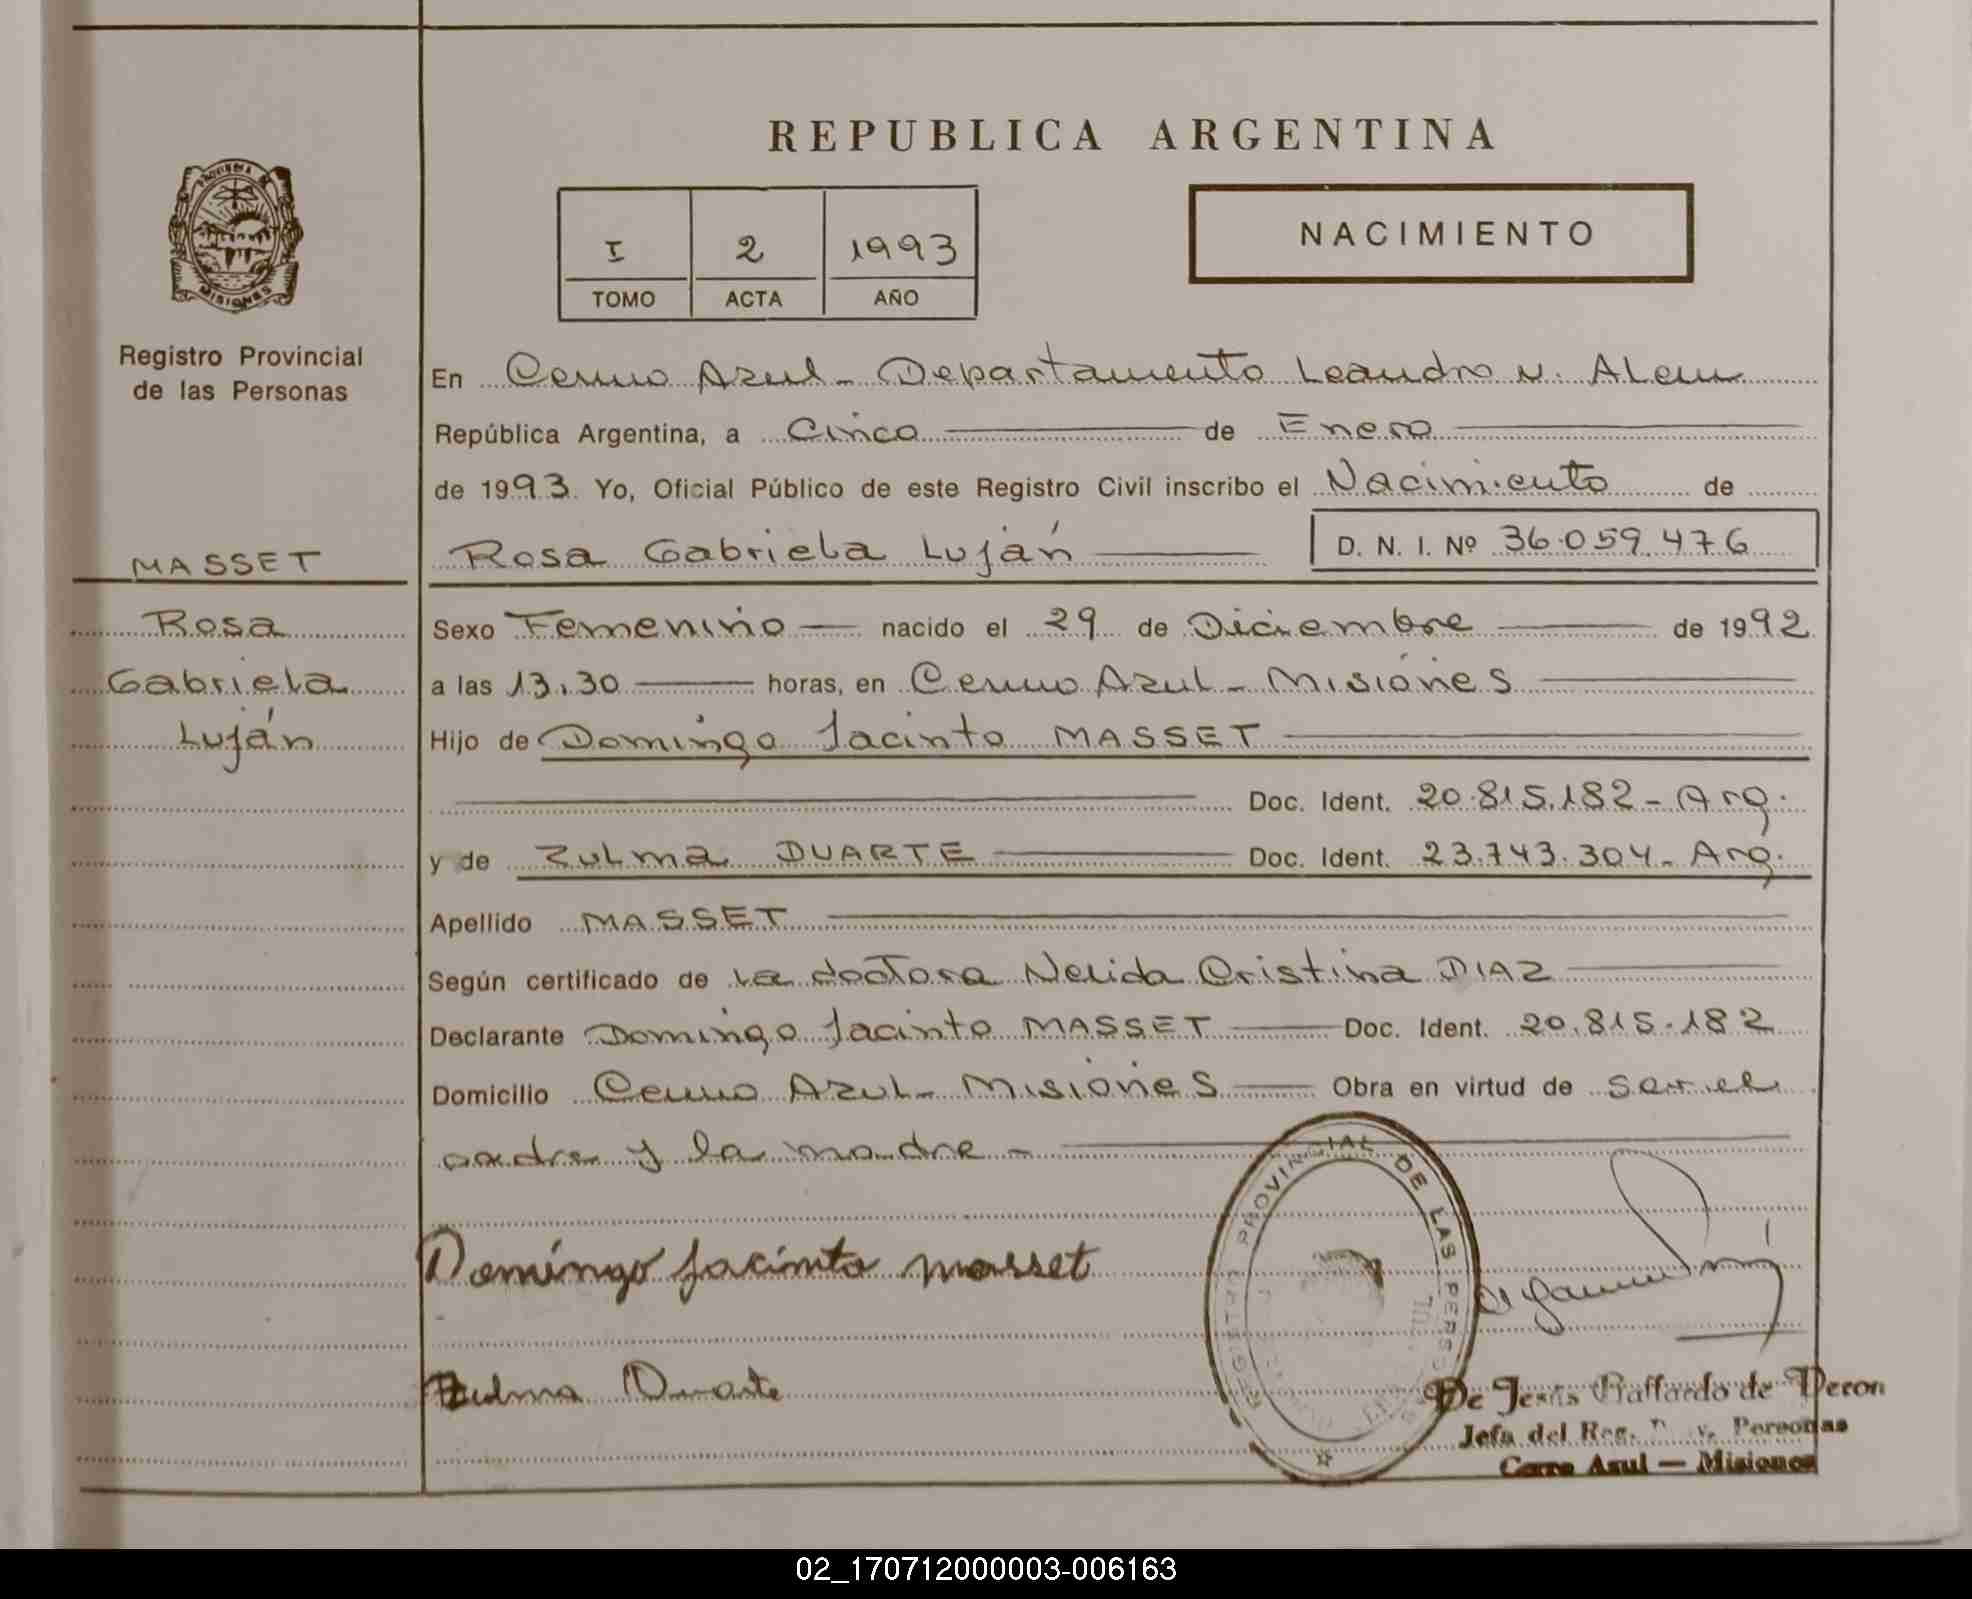 REPUBLICA ARGENTINA
NACIMIENTO
I 2 1993
TOMO ACTA AÑO
PROVINCIA DE
MISIONES
Registro Provincial
de las Personas
En Cerro Azul - Departamento Leandro N. Alem
República Argentina, a Cinco de Enero
de 1993. Yo, Oficial Público de este Registro Civil inscribo el Nacimiento de
MASSET
Rosa Gabriela Luján D. N. I. Nº 36.059.476
Rosa
Gabriela
Luján
Sexo Femenino nacido el 29 de Diciembre de 1992
a las 13.30 horas, en Cerro Azul - Misiones
Hijo de Domingo Jacinto MASSET
Doc. Ident. 20.815.182 - Arg.
y de Zulma DUARTE Doc. Ident. 23.743.304 - Arg.
Apellido MASSET
Según certificado de la doctora Nelida Cristina DIAZ
Declarante Domingo Jacinto MASSET Doc. Ident. 20.815.182
Domicilio Cerro Azul - Misiones Obra en virtud de ser el
padre y la madre -
REGISTRO PROVINCIAL DE LAS PERSONAS
Domingo Jacinto Masset
Zulma Duarte
De Jesús de
Jefa del Reg. Personas
Cerro Azul — Misiones
02_170712000003-006163